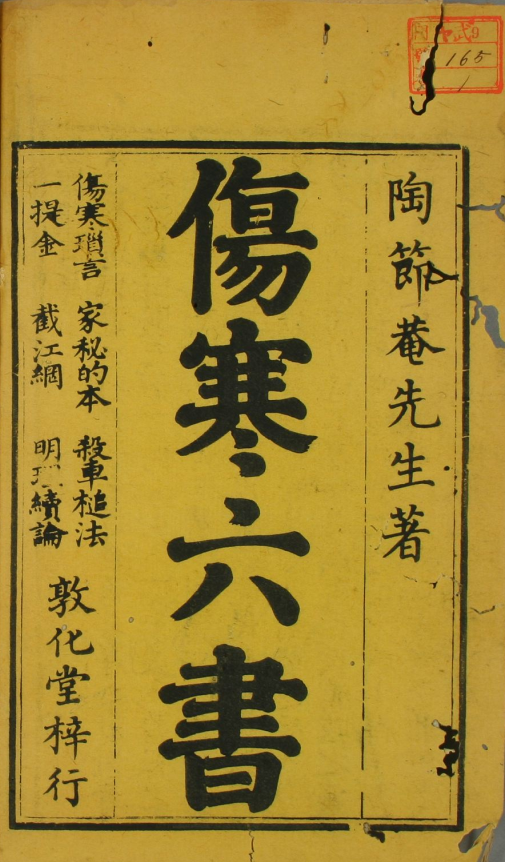 陶節菴先生著
傷寒六書
傷寒瑣言 家秘的本 殺車槌法
一提金 截江網 明理續論
敦化堂梓行
165
1